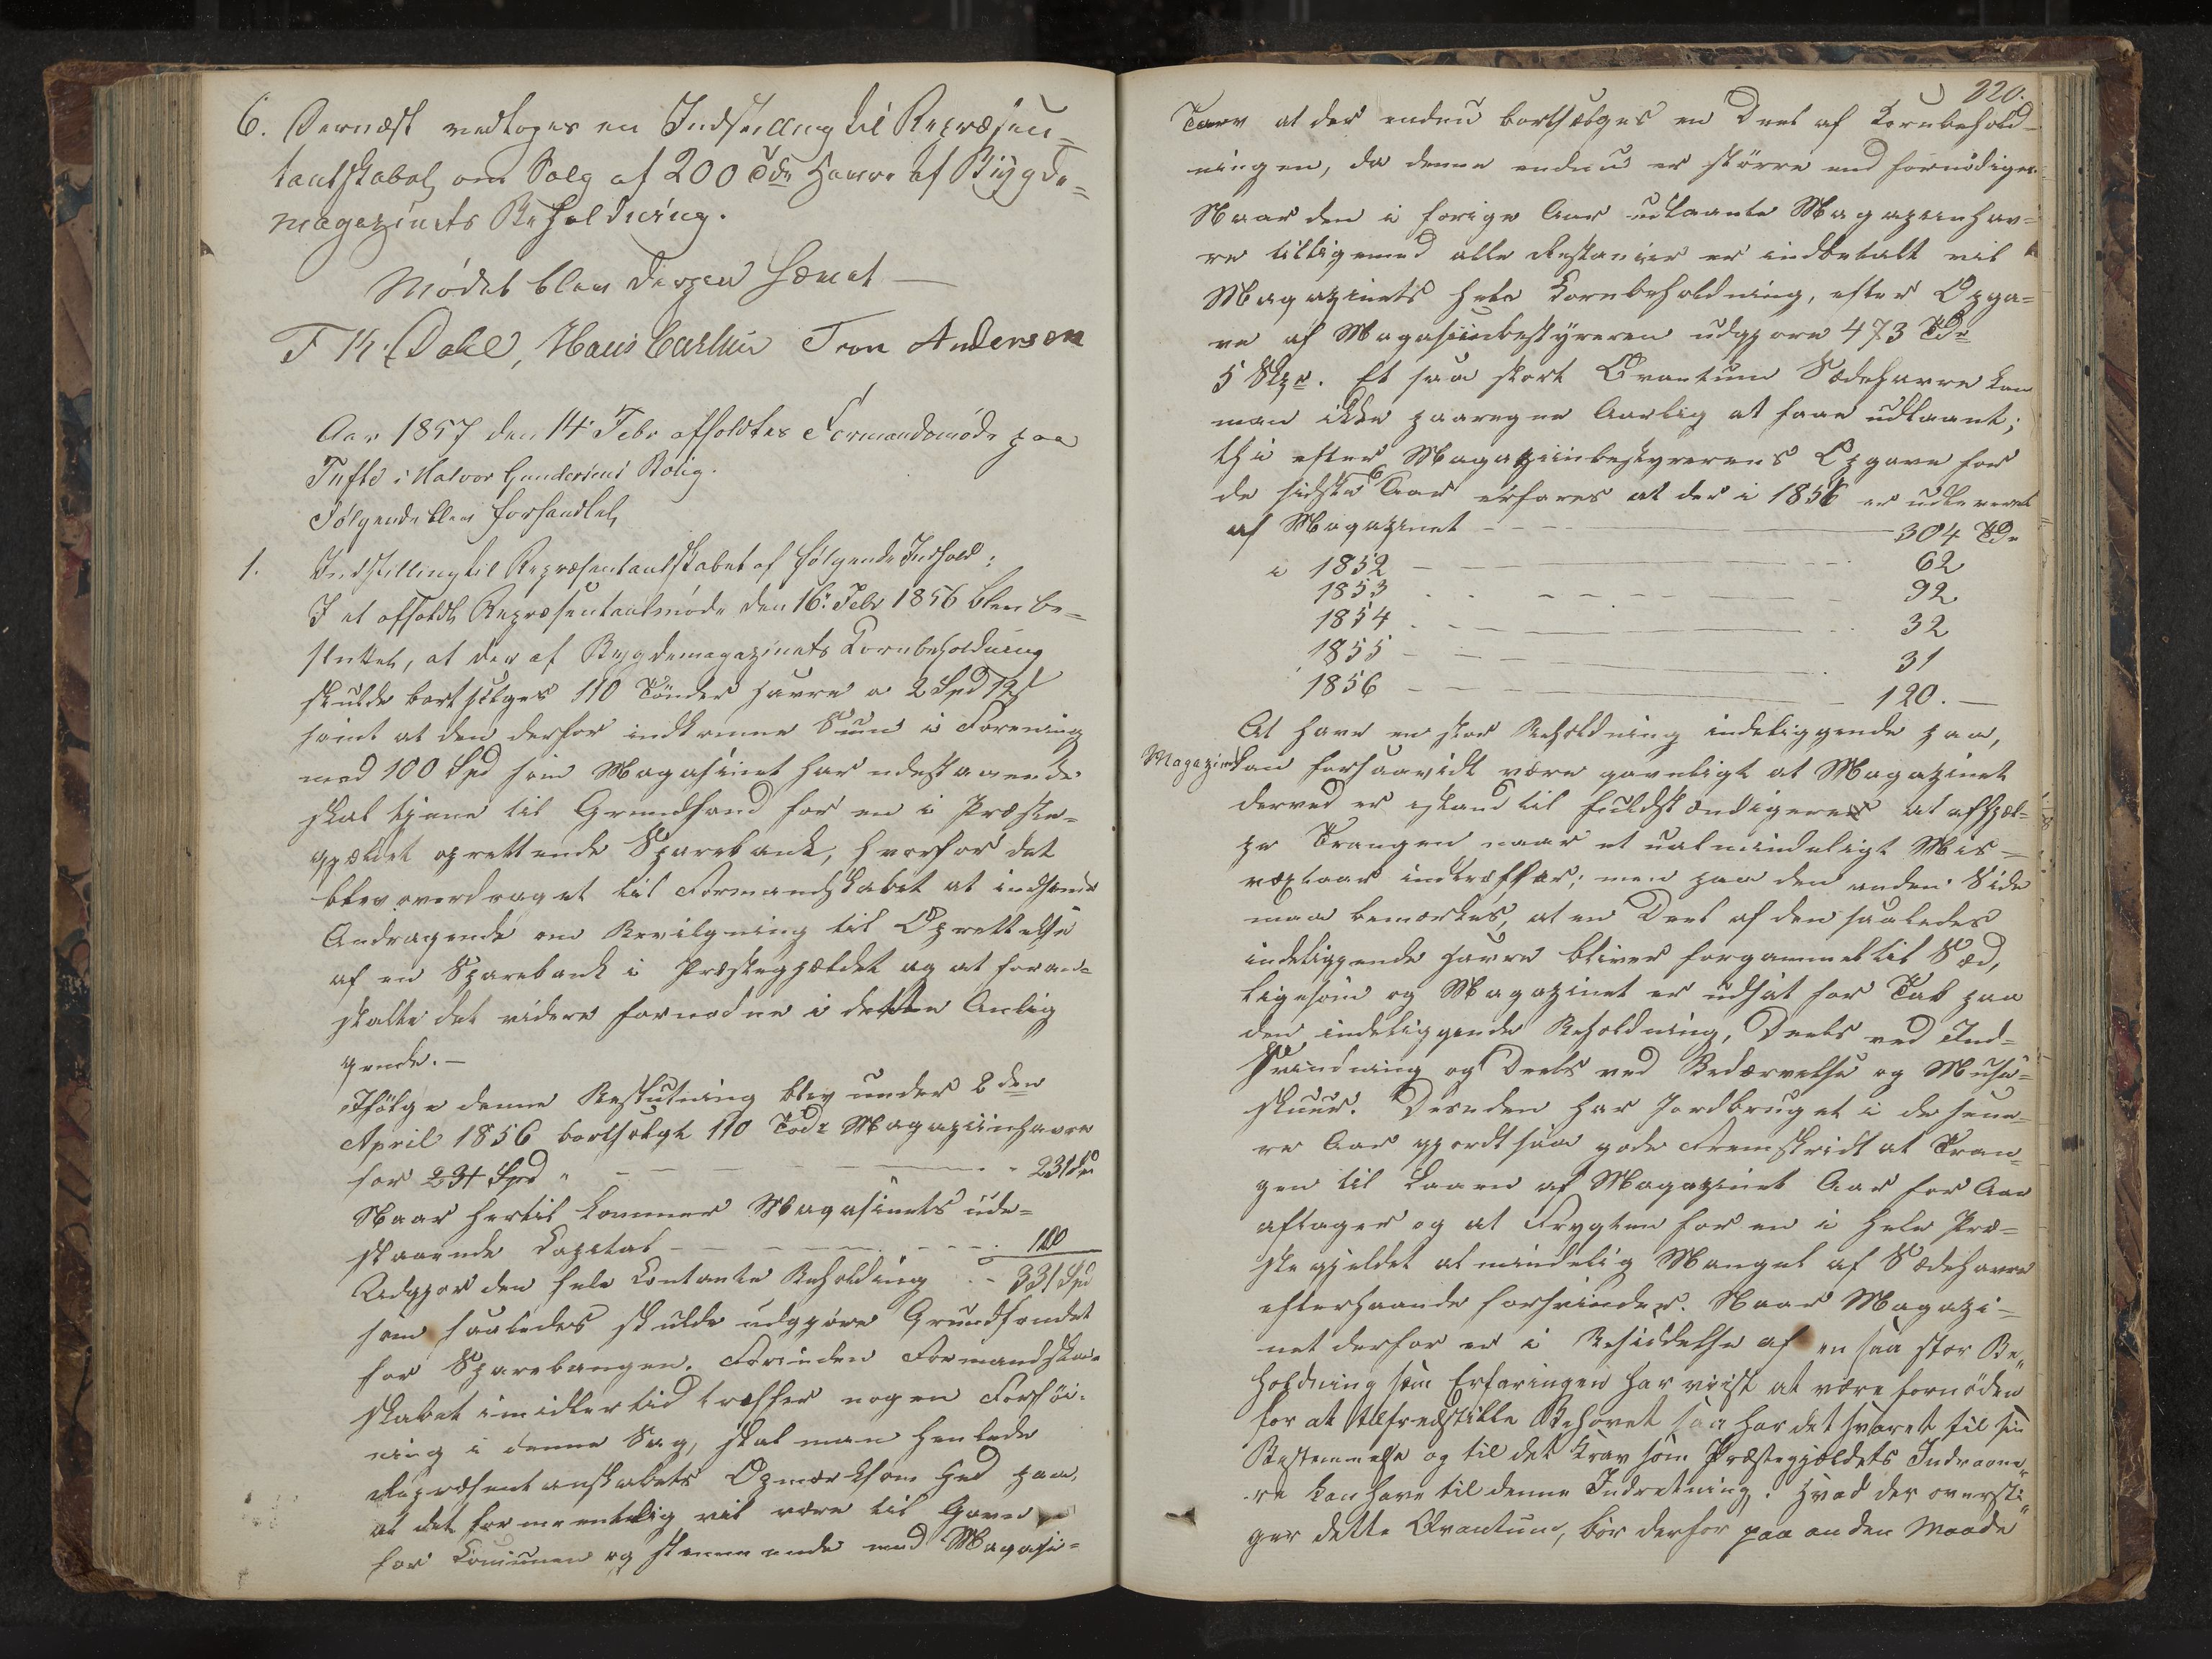 6. Dernæst vedtoges en Indstilling til Repræsen=
tantskabet om Salg af 200 Tdr Havre af Bÿgde=
magazinets Beholdning.
Mødet blev dergen hævet —
T K. Dahl, Hans Carlsen Tron Andersen
Aar 1857 den 14 Febr afholdtes Formandsmøde paa
Tufte i Halvor Gundersens Bolig.
Følgende blev forhandlet
1. Indstilling til Repræsentantskabet af følgende Indhold:
I et afholdt Repræsentantmøde den 16. Febr 1856 blev be=
sluttet, at der af Bygdemagazinets Kornbeholdning
skulde bortsælges 110 Tönder Havre a 2 Spd 12 s
samt at den derfor indkomne Sum i Forening
med 100 Spd som Magasinet har udestaaende
skal tjene til Grundfond for en i Præste=
gjældet oprettende Sparebank, hvorfor det
blev overdraget til Formandskabet at indsende
Andragende om Bevilgning til Oprettelse
af en Sparebank i Præstegjældet og at foran=
stalte det videre fornødne i dette Anlig
gende. —
Ifölge denne Beslutning blev under 2den
April 1856 bortsolgt 110 Tdr Magaziinhavre
for 231 Spd " — — — — 231 Spd
Naar hertil kommer Magasinets ude=
staaende Capital — — — — 100
Udgjør den hele Contante Beholding - - 331 Spd
som saaledes skulde udgjøre Grundfondet
for Sparebangen. Forinden Formandska=
skabet imidlertid træffer nogen Forföi=
ning i denne Sag, skal man henlede
Repræsentanskabets Opmærksomhed paa,
at det formeentelig vil være til Gavn
for Communen og stemmende med Magasi=
220.
Tarv at der endnu bortsælges en Deel af Kornbehold=
ningen, da denne endnu er större end fornödiges.
Naar den i forige Aar udlaante Magaziinhav=
re tilligemed alle Restancier er indbetalt vil
Magazinets hele Kornbeholdning, efter Opga=
ve af Magasiinbestyreren udgjøre 473 Tdr
5 Skpr. Et saa stort Qvantum Sædehavre kan
man ikke paaregne Aarlig at faae udlaant;
thi efter Magaziinbestyrerens Opgave for
de sidste 6 Aar erfares at der i 1856 er udleveret
af Magazinet - - - - 304 Tdr
i 1852 — — — 62
1853 . . - - — — 92
1854 . - - — — 32
1855 - - — — 31
1856 - - — — 120. —
At have en stor Beholdning indeliggende paa,
Magazinet kan forsaavidt være gavnligt at Magazinet
derved er istand til fuldstændigere at afhjæl=
pe Trangen naar et ualmindeligt Mis=
vextaar indtræffer; men paa den anden Side
maa bemærkes, at en Deel af den saaledes
indeliggende Havre bliver forgammel til Sæd,
ligesom og Magazinet er udsat for Tab paa
den indeliggende Beholdning, Deels ved Ind=
svindning og Deels ved Bedærvelse og Muse=
skuur. Desuden har Jordbruget i de sene=
re Aar gjordt saa gode Fremskridt at Tran=
gen til Laan af Magazinet Aar for Aar
aftager og at Frygten for en i hele Præ=
stegjeldet almindelig Mangel af Sædehavre
efterhaande forsvinder. Naar Magazi=
net derfor er i Besiddelse af en saa stor Be„
holdning som Erfaringen har viist at være fornöden
for at tilfredsstille Behovet saa har det svaret til sin
Bestemmelse og til det Krav som Præstegjældets Indvaane„
re kan have til denne Indretning. Hvad der oversti„
ger dette Qvantum, bör derfor paa anden Maade